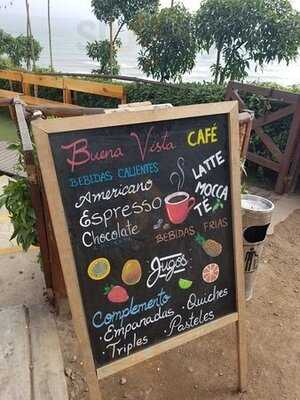 Buena Vista CAFÉ
BEBIDAS CALIENTES
Americano
Espresso
Chocolate
LATTE
MOCCA
TÉ
BEBIDAS FRIAS
Jugos
Complemento
· Empanadas · Quiches
· Triples · Pasteles